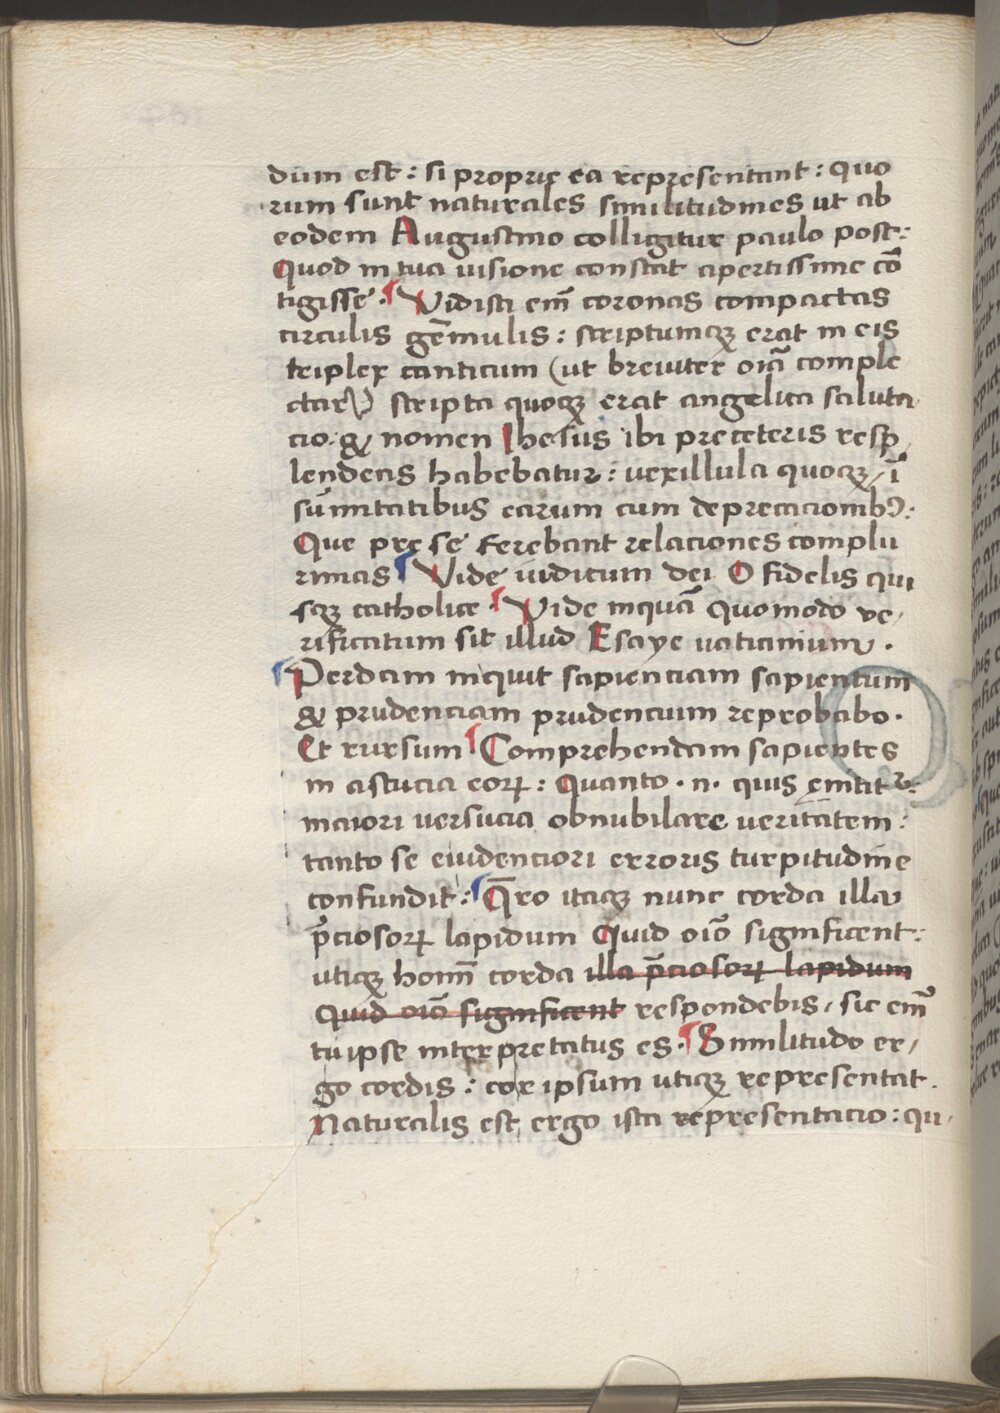 dum est : si proprie ea representant : quo
rum sunt naturales similitudines ut ab
eodem Augustino colligitur paulo post :
Quod in tua uisione constat apertissime cō
tigisse . ¶ Vidisti em̄ coronas compactas
circulis gēmulis : scriptumqꝫ erat in eis
triplex canticum (ut breuiter oīa comple
ctar) scripta quoqꝫ erat angelica saluta
cio . & nomen Ihesus ibi preceteris resp,
lendens habebatur : uexillula quoqꝫ / ī
sūmitatibus earum cum deprecacionibꝰ :
Que pre se ferebant relaciones complu
rimas ¶ Vide iudicum dei O fidelis qui
sqꝫ catholice ¶ Vide inquā quomodo ve,
rificatum sit illud Esaye uaticinium .
¶ Perdam inquit sapienciam sapientum
& prudenciam prudencium reprobabo .
Et rursum ¶ Comprehendam sapientes
in astucia eoꝝ : Quanto . n . quis enititr :
maiori uersucia obnubilare ueritatem :
tanto se euidenciori erroris turpitudine
confundit : ¶ Q̄ro itaqꝫ nunc corda illa
p̄ciosoꝝ lapidum Quid oīo significent :
utiqꝫ hoīm corda illa p̄ciosoꝝ lapidum
Quid oīo significent respondebis / sic em̄
tu ipse interpretatus es . ¶ Similitudo er,
go cordis : cor ipsum utiqꝫ representat .
Naturalis est ergo ista representacio : qu,